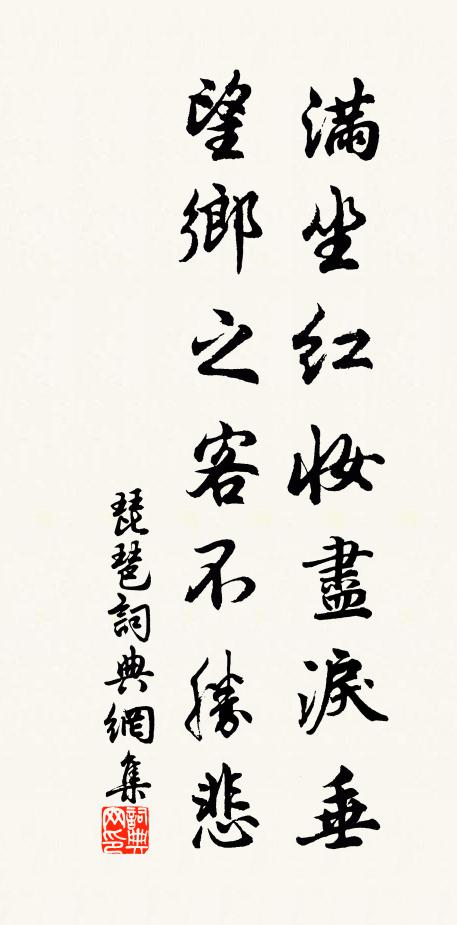 滿坐红妝盡淚垂
望鄉之客不勝悲
琵琶詞典網集
詞典
网印